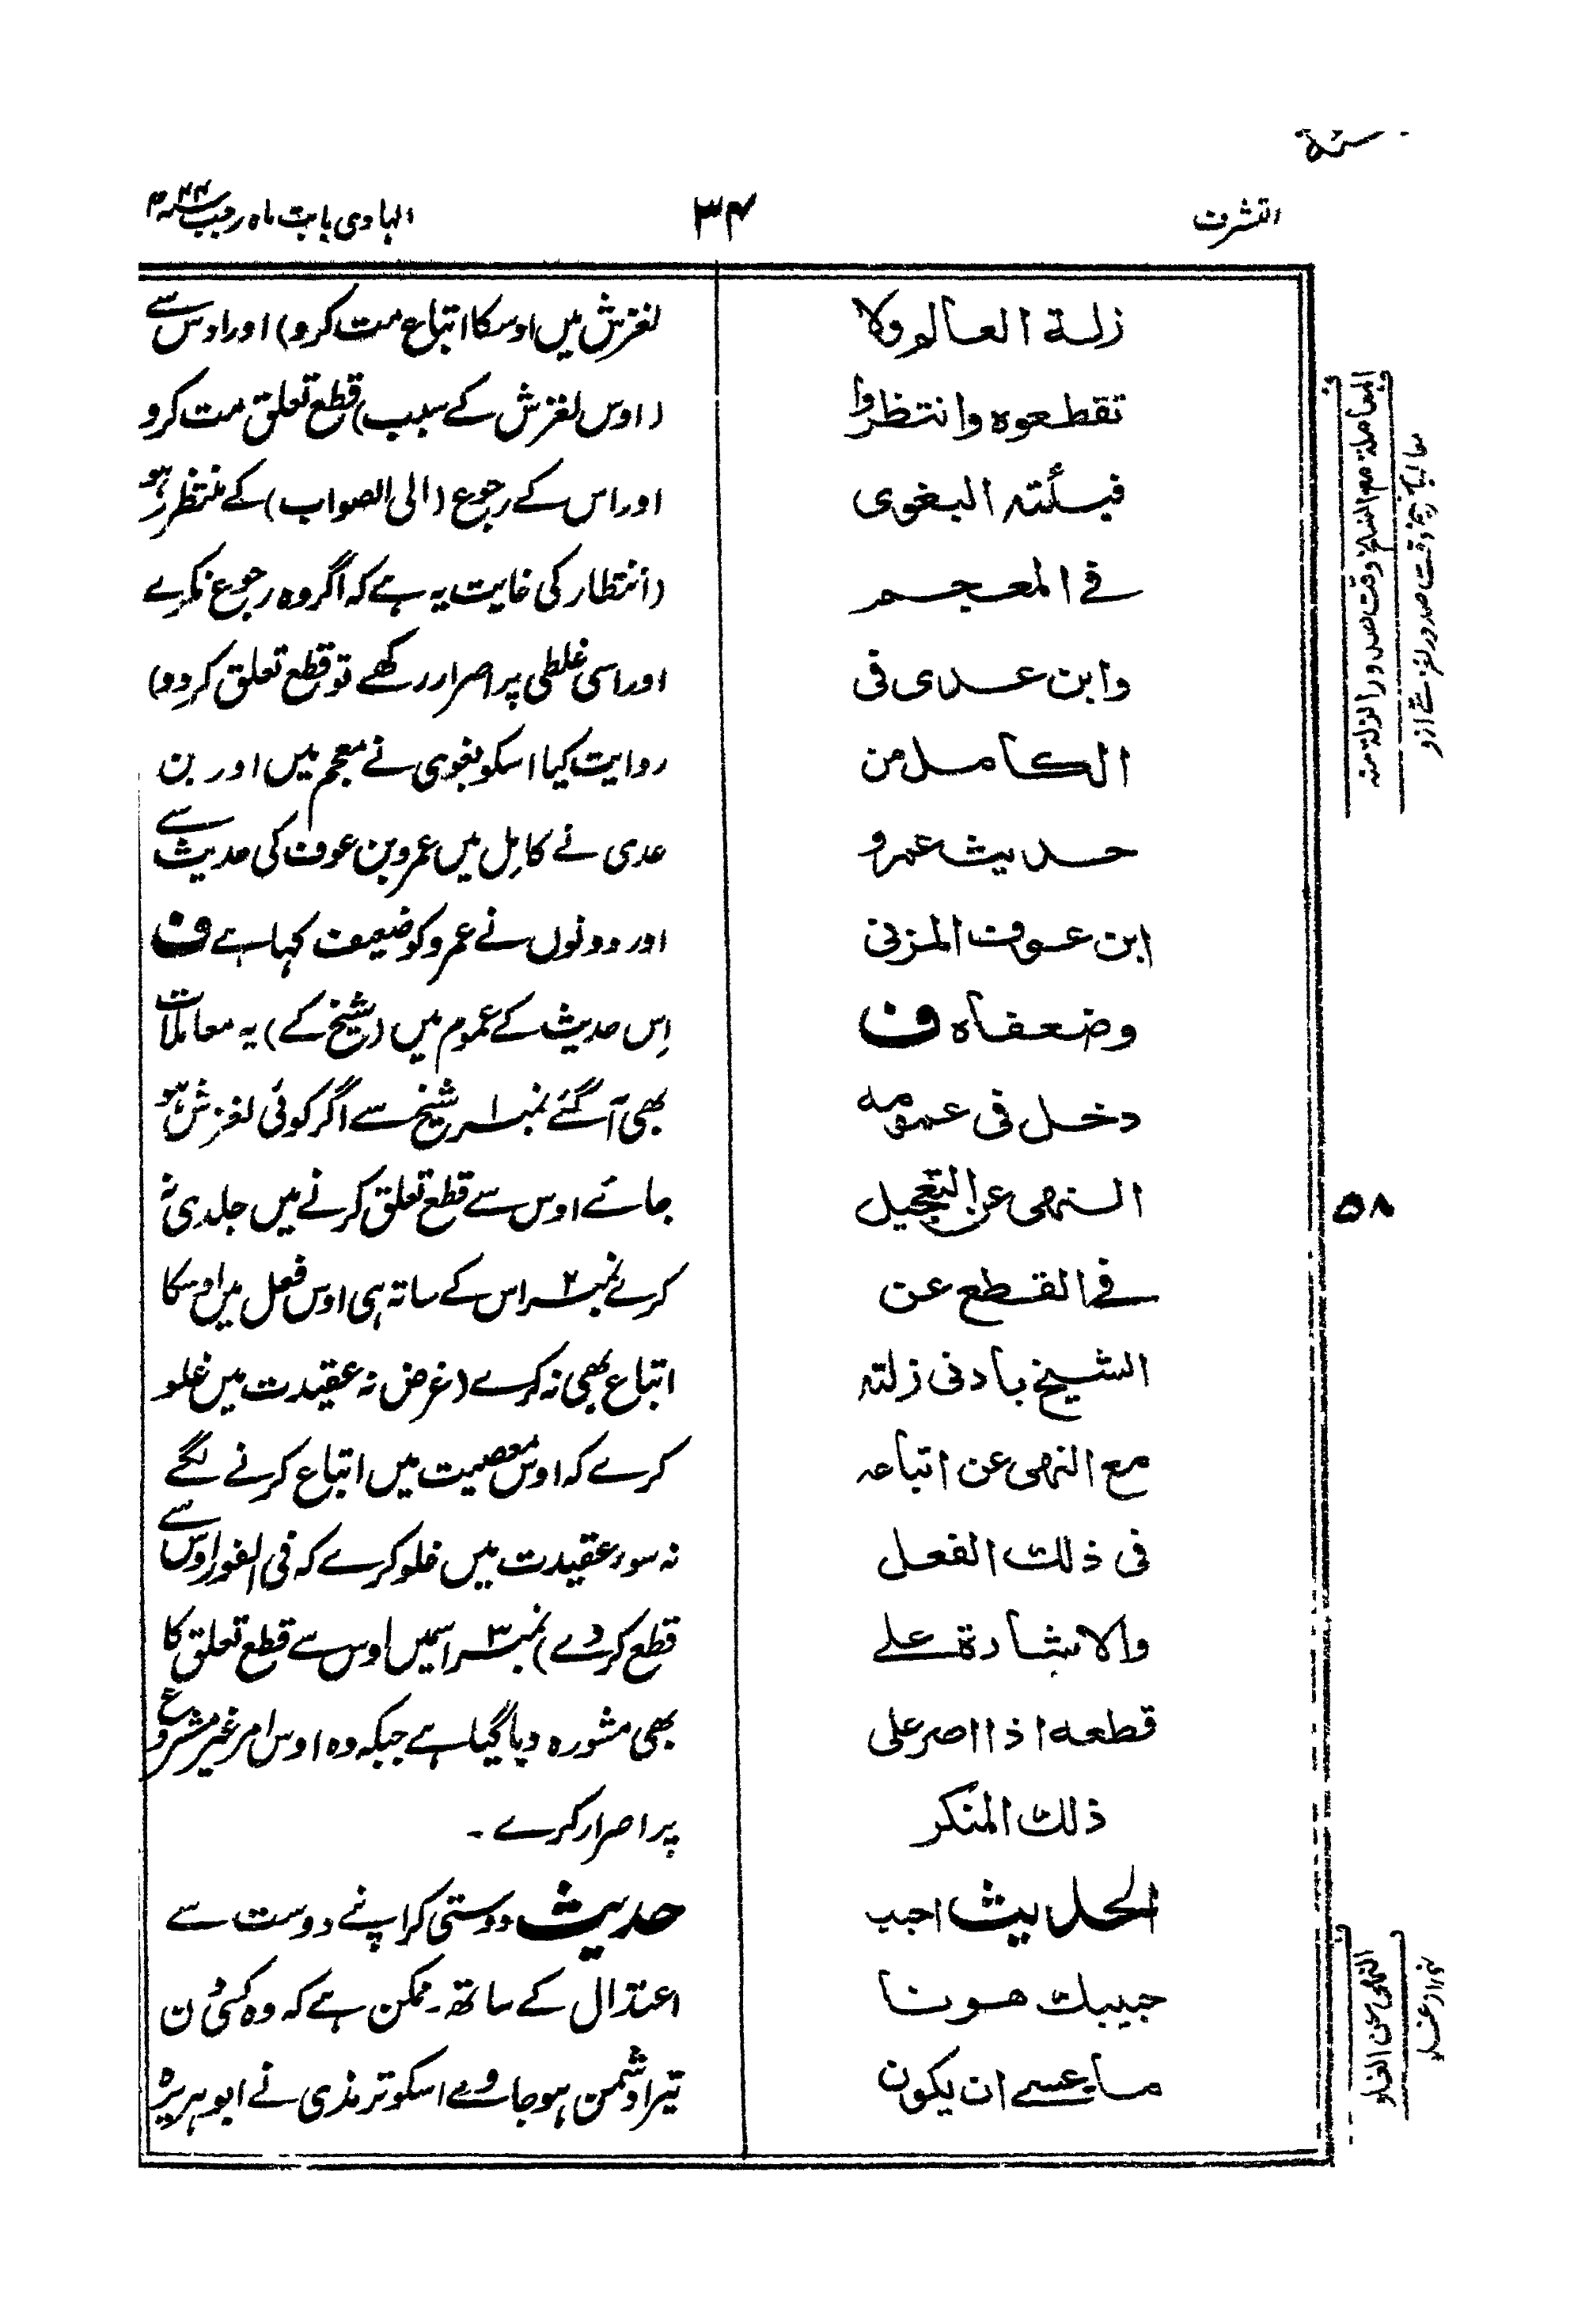 التشرف
۳۴
الہادی بابت ماہ رجب
زلة العالم ولا
تقطعوه وانتظروا
فيئته البغوى
فے المعجم
وابن عدى فى
الكامل من
حديث عمرو
ابن عوف المزنى
وضعفاه ف
دخل فى عمومه
النهى عن التعجيل
فے القطع عن
الشيخ بادنى زلته
مع النهى عن اتباعه
فى ذلك الفعل
والاشارة علے
قطعه اذا اصر على
ذلك المنكر
الحديث احبب
حبيبك هونا
ما عسے ان يكون
لغزش میں اوسکا اتباع مت کرو) اور اوس سے
(اوس لغزش کے سبب) قطع تعلق مت کرو
اور اس کے رجوع (الی الصواب) کے منتظر رہو
(انتظار کی غایت یہ ہے کہ اگر وہ رجوع نکرے
اور اسی غلطی پر اصرار رکھے تو قطع تعلق کر دو)
روایت کیا اسکو بغوی نے معجم میں اور بن
عدی نے کامل میں عمرو بن عوف کی حدیث سے
اور دونوں نے عمرو کو ضعیف کہا ہے ف
اِس حدیث کے عموم میں (شیخ کے) یہ معاملات
بھی آگئے نمبر۱ شیخ سے اگر کوئی لغزش ہو
جائے اوس سے قطع تعلق کرنے میں جلدی نہ
کرے نمبر۲ اس کے ساتہ ہی اوس فعل میں اوسکا
اتباع بھی نہ کرے (غرض نہ عقیدت میں غلو
کرے کہ اوس معصیت میں اتباع کرنے لگے
نہ سوء عقیدت میں غلو کرے کہ فی الفور اوس سے
قطع کر دے) نمبر۳ اسمیں اوس سے قطع تعلق کا
بھی مشورہ دیا گیا ہے جبکہ وہ اوس امر غیر مشروع
پر اصرار کرے ۔
حدیث دوستی کر اپنے دوست سے
اعتدال کے ساتھ ۔ ممکن ہے کہ وہ کسی دن
تیرا دشمن ہو جاوے اسکو ترمذی نے ابو ہریرہ
المعاملة مع الشيخ وقت صدور الزلة منه
معاملہ با شیخ وقت صدور لغزشے ازو
۵۸
النهى عن الغلو
نہی از غلو